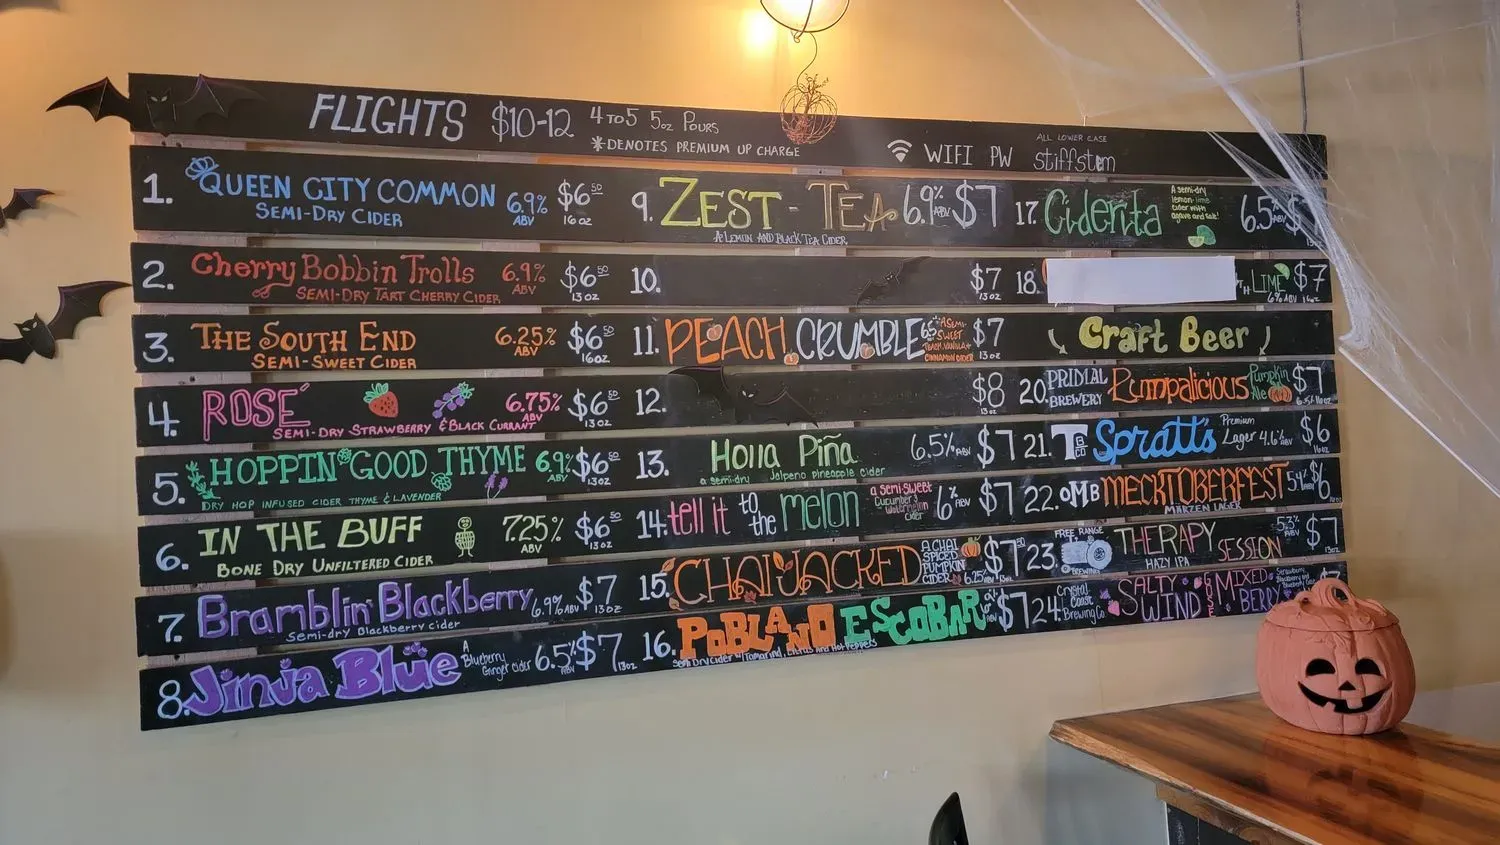 FLIGHTS $10-12 4 TO 5 5oz POURS
*DENOTES PREMIUM UP CHARGE
WIFI PW
ALL LOWER CASE
stiffstem
1. QUEEN CITY COMMON 6.9% ABV $6.50 16 oz
SEMI-DRY CIDER
2. Cherry Bobbin Trolls 6.9% ABV $6.50 13 oz
SEMI-DRY TART CHERRY CIDER
3. THE SOUTH END 6.25% ABV $6.50 16oz
SEMI-SWEET CIDER
4. ROSÉ 6.75% ABV $6.50 13oz
SEMI-DRY STRAWBERRY & BLACK CURRANT
5. HOPPIN' GOOD THYME 6.9% ABV $6.50 13oz
DRY HOP INFUSED CIDER THYME & LAVENDER
6. IN THE BUFF 7.25% ABV $6.50 13oz
BONE DRY UNFILTERED CIDER
7. Bramblin' Blackberry 6.9% ABV $7 13oz
Semi-dry Blackberry cider
8. Jinja Blue A Blueberry Ginger cider 6.5% ABV $7 13oz
9. ZEST-TEA 6.9% ABV $7
A LEMON AND BLACK TEA CIDER
10. $7 13oz
11. PEACH CRUMBLE A SEMI-SWEET PEACH, VANILLA + CINNAMON CIDER $7 13oz
12. $8 13oz
13. Holla Piña 6.5% ABV $7
a semi-dry Jalpeno pineapple cider
14. tell it to the melon a semi-sweet cucumber & watermelon cider 6% ABV $7
15. CHAI JACKED A CHAI SPICED PUMPKIN CIDER 6.25% $7.50
16. POBLANO ESCOBAR $7
SEMI DRY CIDER W/ TAMARIND, CITRUS AND HOT PEPPERS
17. Ciderita A semi-dry lemon-lime cider with agave and salt! 6.5% ABV
18. LIME $7
6% ABV 16oz
Craft Beer
20. PRIDIAL BREWERY Pumpalicious Pumpkin Ale $7
21. Spratt's Premium Lager 4.6% ABV $6
22. OMB MECKTOBERFEST 5.4% $6
MÄRZEN LAGER
23. FREE RANGE BREWING THERAPY SESSION 5.3% ABV $7 13oz
HAZY IPA
24. Crystal Coast Brewing Co SALTY WIND MIXED BERRY